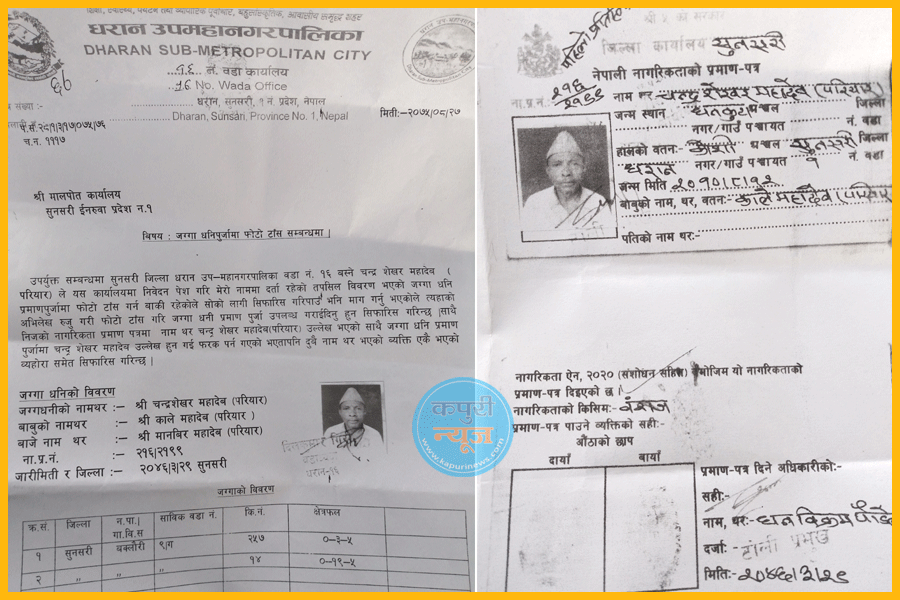 शिक्षा, स्वास्थ्य, पर्यटन तथा व्यापारिक पूर्वाधार, बहुसांस्कृतिक, आवासीय समृद्ध शहर
धरान उपमहानगरपालिका
DHARAN SUB-METROPOLITAN CITY
१६ नं. वडा कार्यालय
16 No. Wada Office
धरान, सुनसरी, १ नं. प्रदेश, नेपाल
Dharan, Sunsari, Province No. 1, Nepal
संख्या :-
मिती:-२०७५/०८/२७
च.न. १११७
श्री मालपोत कार्यालय
सुनसरी ईनरुवा प्रदेश नं.१
विषय : जग्गा धनिपुर्जामा फोटो टाँस सम्बन्धमा |
उपर्युक्त सम्बन्धमा सुनसरी जिल्ला धरान उप-महानगरपालिका वडा नं. १६ बस्ने चन्द्र शेखर महादेव (
परियार) ले यस कार्यालयमा निवेदन पेश गरि मेरो नाममा दर्ता रहेको तपसिल विवरण भएको जग्गा धनि
प्रमाणपुर्जामा फोटो टाँस गर्न बाकी रहेकोले सोको लागी सिफारिस गरिपाउँ भनि माग गर्नु भएकोले त्यहाको
अभिलेख रुजु गरी फोटो टाँस गरि जग्गा धनी प्रमाण पुर्जा उपलब्ध गराईदिनु हुन सिफारिस गरिन्छ |साथै
निजको नागरिकता प्रमाण पत्रमा नाम थर चन्द्र शेखर महादेव(परियार) उल्लेख भएको साथै जग्गा धनि प्रमाण
पुर्जामा चन्द्र शेखर महादेव उल्लेख हुन गई फरक पर्न गएको भएतापनि दुवै नाम थर भएको व्यक्ति एकै भएको
व्यहोरा समेत सिफारिस गरिन्छ |
जग्गा धनिको विवरण
जग्गधनीको नामथर :– श्री चन्द्रशेखर महादेव (परियार)
बाबुको नामथर :– श्री काले महादेव (परियार )
बाजे नाम थर :– श्री मानबिर महादेव (परियार)
ना.प्र.नं. :– २१६/२१९९
जारीमिती र जिल्ला :– २०४६/३/२९ सुनसरी
जग्गाको विवरण
क्र.सं. जिल्ला न.पा.| गा.वि.स साविक वडा नं. कि.नं. क्षेत्रफल
१ सुनसरी ९/ग २५७ ०-३-५
२ ,, ,, १४ ०-१९-५
कपुरी
न्यूज
www.kapurinews.com
श्री ५ को सरकार
जिल्ला कार्यालय सुनसरी
नेपाली नागरिकताको प्रमाण-पत्र
ना.प्र.नं. २१६/२१९९
नाम थर चन्द्र शेखर महादेव (परियार)
जन्म स्थान धनकुटा अञ्चल जिल्ला
नगर/गाउँ पञ्चायत नं. वडा
हालको वतन:- कोशी अञ्चल सुनसरी जिल्ला
धरान नगर/गाउँ पञ्चायत नं. वडा
जन्म मिति २०१०/८/१२
बाबुको नाम, थर, वतन:- काले महादेव (परियार)
पतिको नाम थर:-
नागरिकता ऐन, २०२० (संशोधन सहित) बमोजिम यो नागरिकताको
प्रमाण-पत्र दिइएको छ।
नागरिकताको किसिम:- वंशज
प्रमाण-पत्र पाउने व्यक्तिको सही:-
बौंठाको छाप
दायाँ बायाँ
प्रमाण-पत्र दिने अधिकारीको:-
सही:-
नाम, थर:- धन विक्रम पाँडे
दर्जा:- टोली प्रमुख
मिति:- २०४६/३/२९